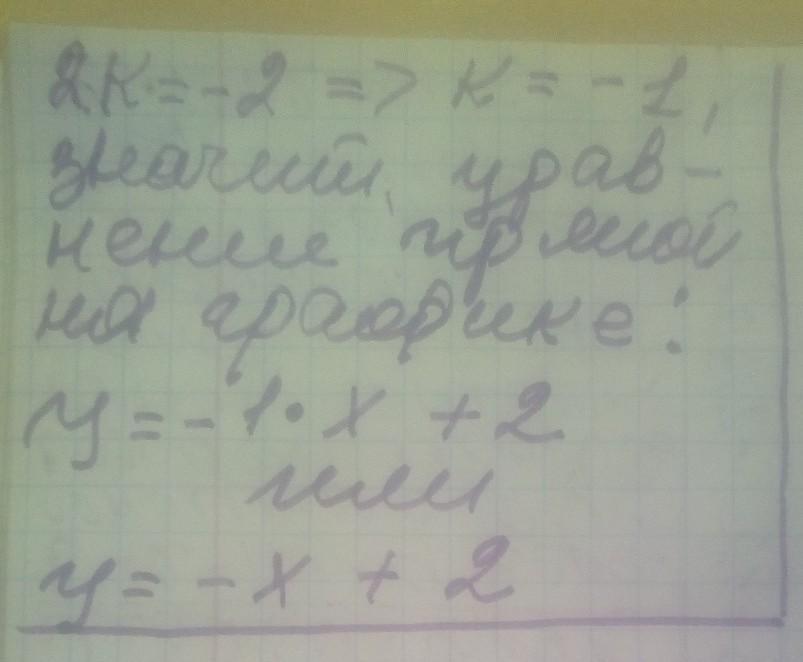 2k = -2 => k = -1,
значит, урав-
нение прямой
на графике:
y = -1 · x + 2
или
y = -x + 2